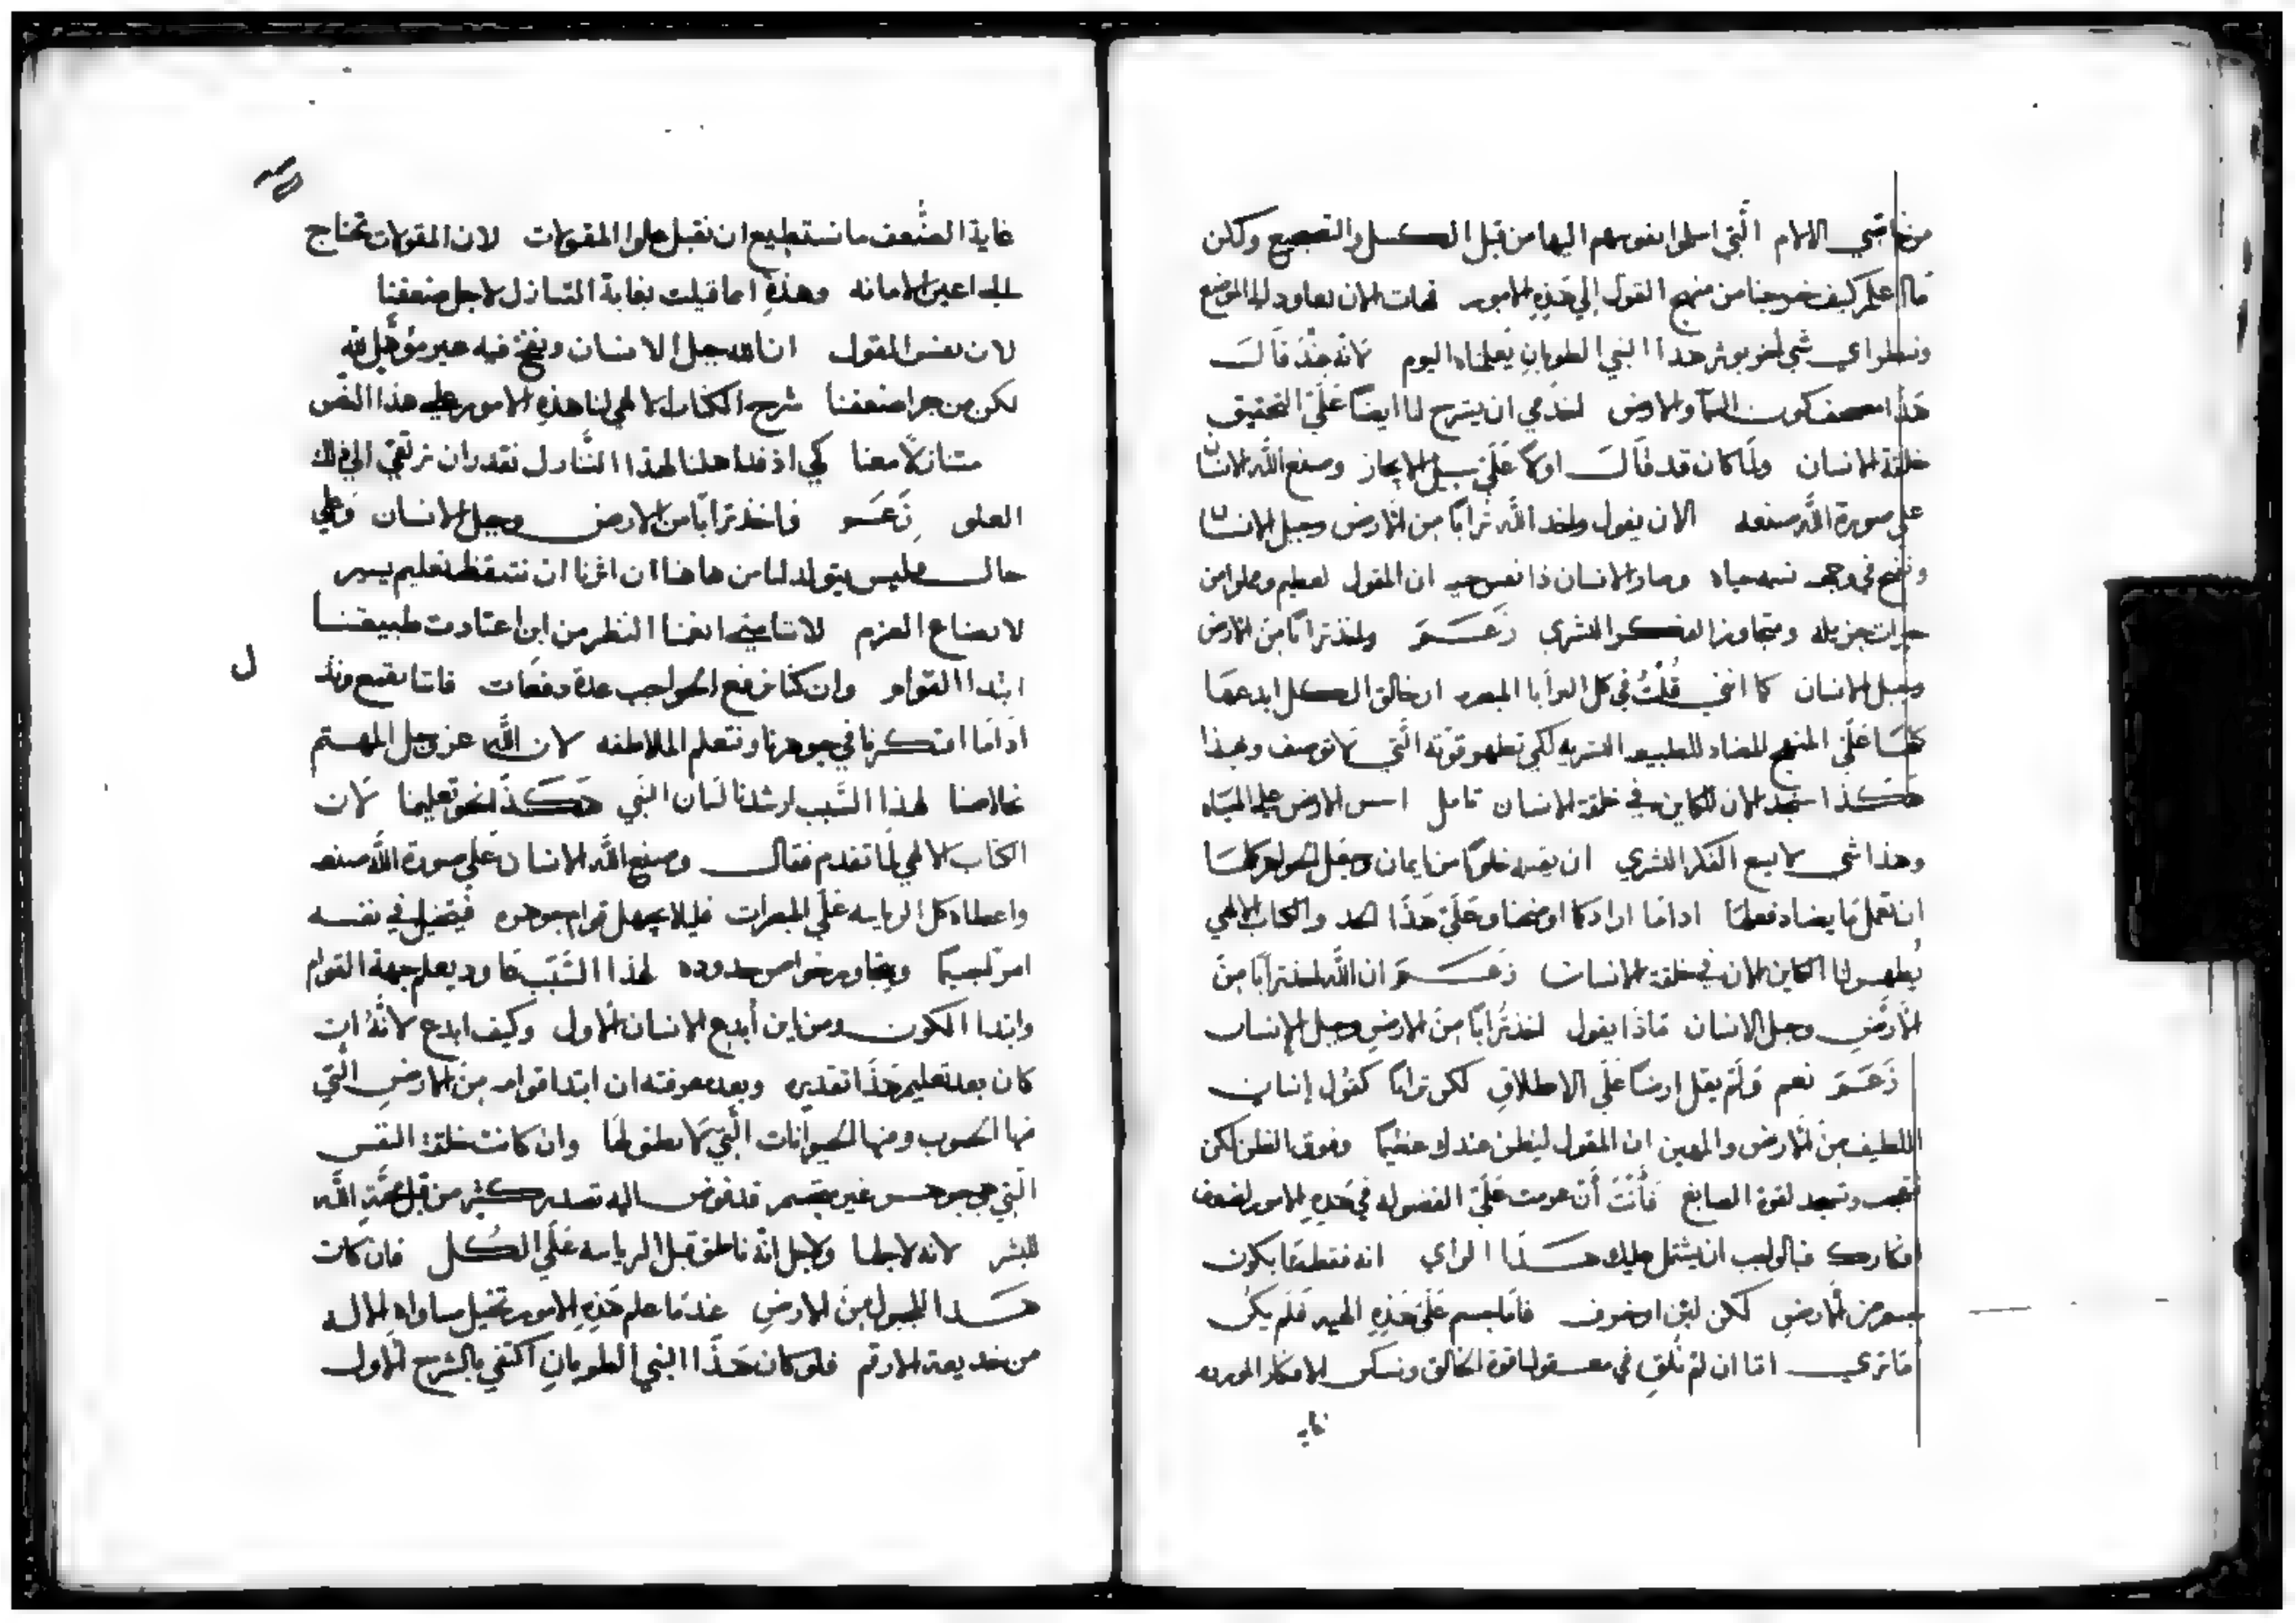 من خاصي الالام الَّتي اسلموا نفوسهم اليها من قبل الكسل والتضجيع ولكن
ما اعلم كيف خرجنا من منهج القول إلي هَذِهِ الامور فهات الان نعاود الي الموضع
وننظر اي شي اخر يوثر هذا النبي الطوبانِ يُعلمناه اليوم لانَّه هكذا قالَ
هَذا مصحف كون السمآ والارض اخذ في ان يشرح لنا ايضًا عَلَىَ التحقيق
خلقة الانسان ولمَا كان قد قَالَ اولاً عَلَىَ سبيل الايجاز وصنع اللَّه الانسان
علي صورة اللَّه صنعه الان يقول واخذ اللَّه تُرابًا من الارض وجبل الانسان
ونفخ في وجهه نسمه حياه وصار الانسان ذا نفس حيه ان المقول لعظيم ومملوا من
حيرات جزيله ومتجاوز الفكر البشري زَعَمَ واخذ ترابًا مِنَ الارض
وجبل الانسان كما انني قُلْتُ في كل البرايا المبصره ان خالق الكل ابدعهَا
كلهَا عَلَىَ المنهج المضاد للطبيعه البشريه لكي تظهر قوّته الَّتي لا توصف وبهذا
هَكَذا ستجد الان الكاين في خلقة الانسان تامل اسس الارض علي المياه
وهذا شي لا يسع الفكر البشري ان يقبله خلوًا من ايمان وجعل الجواهر كلهَا
ان تعمل مَا يضاد فعلهَا اذا مَا اراد كما اوضحنا وعَلَىَ هَذَا الحد والكتاب الالهي
يُظهر لنا الكاين الان في خلقة الانسان زَعَمَ ان اللَّه اخذ ترابًا مِنَ
الارَضِ وجبل الانسان مَاذَا يقول اخذ تُرابًا مِنَ الارضِ وجبل الإنسان
زَعَمَ نعم وَلَمْ يقل ارضًا عَلَىَ الاطلاقِ لكن ترابًا كقوَل إنسانٍ
اللطيف مِنَ الارض والمهين ان المقول ليظن عندك عظيمًا وفوق الظن لكن
فتعجب وتسجد لقوة الصانع فَأَنْتَ أَن عزمت عَلَىَ الفضوله في هَذِهِ الامور لضعف
افكارك فبالواجب ان يشتمل عليك هَذَا الراي انه فقط مَا يكون
جسم من الارضِ لكن لبن او خزف فامَا جسم عَلَىَ هَذِهِ الهيه فَلَمْ يكن
مَا تري امّا ان لم نُلقِ في معقولنا قوة الخالق ونسكن الافكار المورده
غايه
غاية الضُّعف ما نستطيع ان نقبل علوا المقولات لان المقولات تحتاج
الي اعين الامانه وهذهِ انما قيلت بغاية التنازل لاجل ضعفنا
لان نفس القول ان الله جبل الانسان ونفخ فيه غير مؤَّهل للَّه
لكن من جرا ضعفنا شرح الكتاب الالهي لنا هذهِ الامور علي هذا النصّ
متنازلاً معنا لكي اذ قد اهلنا لهذا التَّنازل نقدر ان نرتقي الي ذلك
العلو زَعَمَ فاخذ ترابًا من الارض وجبل الانسان وَعلي
حال فليس يتولد لنا من هاهنا ان اثرنا ان نتيقظ تعليم يسير
لاتضاع العزم لاننا متي امعنا النظر من اين اعتادت طبيعتنا
ابتدا القوام وان كنّا نرفع الحواجب عدة دفعات فاننا نقمع ونذل
اذَامَا افتكرنا في جوهرنا ونتعلم الملاطفه لان اللَّه عز وجل المهتم
بخلاصنا لهذا السَّبب ارشد لنا لسَان النبي هَكَذَا لنحو تعليمنا لان
الكتاب الالهي لمَا تقدم فقال وصنع اللَّه الانسان علي صورة اللَّه صنعه
واعطاه كل الرياسه عَلَىَ المبصرات فليلا يجهل قوام جوهره فيتخيل في نفسه
امورًا جسيمة ويتجاوز خواص حدوده لهذا السَّبب عَاود يعلم جهة القوام
وابتدا الكون ومن اين أُبدع الانسان الاول وكيف ابدع لانَّهُ ان
كان بعد تعليم هَذَا تقديره وبعد معرفته ان ابتدا قوامه مِنَ الارضِ الَّتي
منها العشوب ومنها الحيوانات الَّتي لا نطق لهَا وان كانت خلقة النفس
الَّتي هي جوهر غير متجسم قد فوض اليه تصدر كثير من قبل محبَّة اللَّه
للبشر لانه لاجلها ولاجل انّه ناطق قبل الرياسه عَلَىَ الكُل فان كان
هَذا المجبول مِنَ الارضِ عندمَا علم هَذِهِ الامور تخيل مساواه الاله
من خديعة الارقم فلو كان هَذَا النبي الطوبانِ اكتفي بالشرح الاول
ل